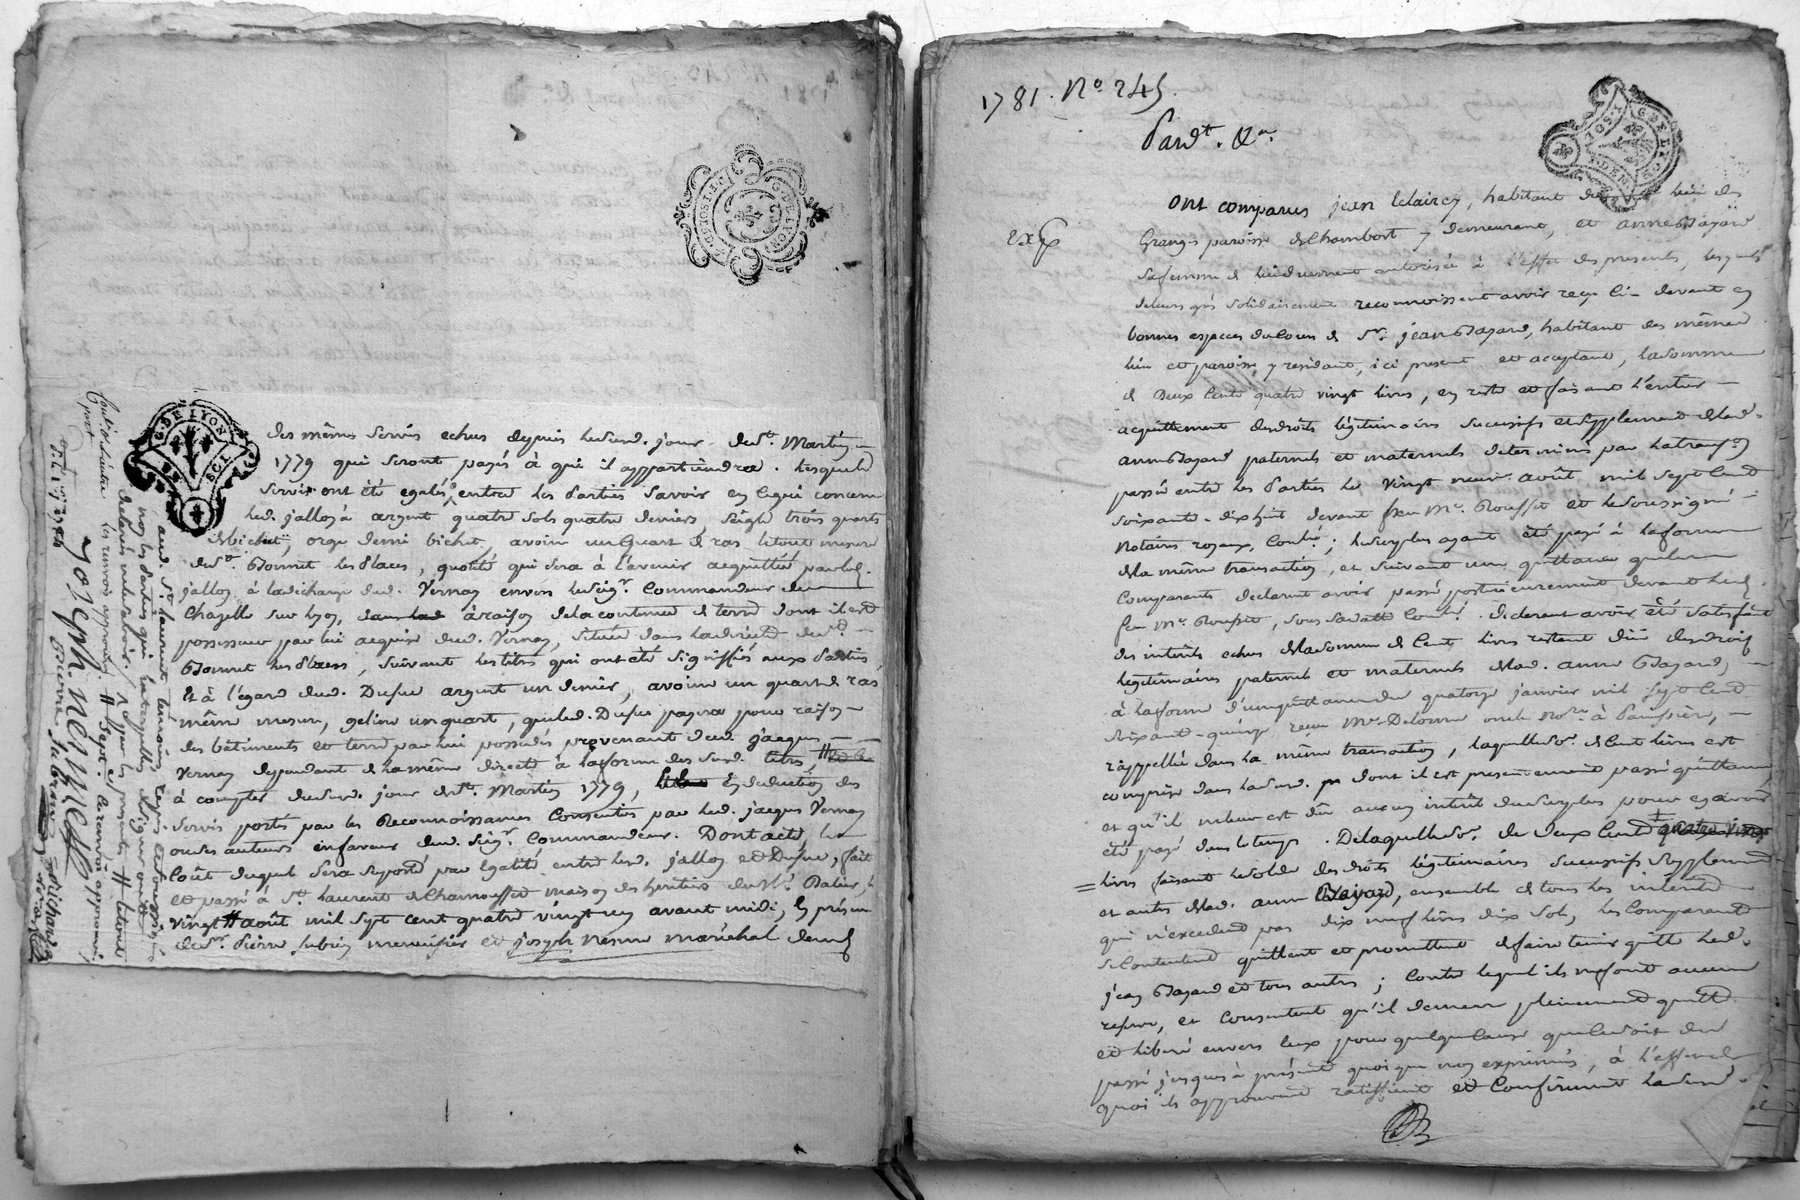 G. DE LYON
des mêmes servis echus depuis led. jour de St. Martin
1779 qui seront payés à qui il appartiendra. lesquels
servis ont été egalés entre les Parties savoir en ce qui concerne
led. jallon à argent quatre sols quatre deniers, seigle trois quarts
de bichet, orge demi bichet, avoine un quart de ras le tout mesure
de St. Bonnet les Places, quotité qui sera à l'avenir acquittée par led.
jallon à la décharge dud. Vernay envers le Seigr. Commandeur de
Chapelle sur Lyon, à raison de la contenue de terre dont il est
possesseur par lui acquise dud. Vernay, située dans la directe de St.
Bonnet les Places, suivant les titres qui ont été signiffiés aux Parties,
Et à l'égard dud. Dufue argent un denier, avoine un quart de ras
même mesure, geline un quart, que led. Dufue payera pour raison
des bâtiments et terre par lui possedés provenant dud. jacques
Vernay dependant de la même directe à la forme des susd. titres, #
à compter dud. jour de St. Martin 1779, En deduction des
servis portés par les Reconnoissances Consenties par led. jacques Vernay
ou ses auteurs en faveur dud. Seigr. Commandeur. Dont acte, le
coût duquel sera suporté par egalité entre led. jallon et Dufue, fait
et passé à St. Laurent de Chamousset maison des heritiers du Sr. Balier, le
vingt # août mil sept cent quatre vingt un avant midi, En présence
de Sr. Pierre Subrin menuisier et joseph nesme maréchal dem.
aud. St. Laurent témoins requis et soussignés
non les Parties qui interpellées de signer ont
déclaré ne le savoir.
les renvois approuvés # sept. le renvoi approuvé
joseph. nesme
Pierre Subrin
1781. No. 245.
Pard.t &a.
Exp
G. DE LYON
Ont comparus jean leclaircy, habitant du lieu des
Granges paroisse de Chambost y demeurant, et anne Bajard
sa femme de lui duement autorisée à l'effet des presentes, lesquels
de leurs grés solidairement reconnoissent avoir reçu ci-devant en
bonnes especes du cours de Sr. jean Bajard, habitant des mêmes
lieu et paroisse y residant, ici present et acceptant, la somme
de Deux Cents quatre vingt livres, en reste et faisant l'entier
acquittement des droits légitimaires successifs et supplement de lad.
anne Bajard paternels et maternels determinés par la transaction
passée entre les Parties le vingt neuf août mil sept cent
soixante-dix huit devant feu Me. Rousset et le soussigné
Notaires royaux, ; le surplus ayant été payé à la forme
de la même transaction, et suivant une quittance que les
comparants declarent avoir passé posterieurement devant led.
feu Me. Rousset, . declarent avoir été satisfaits
des interêts echus de la somme de Cent livres restant due des droits
légitimaires paternels et maternels de lad. anne Bajard,
à la forme d'une quittance du quatorze janvier mil sept cent
soixante-quinze reçue Me. Delorme Notre. à Panissière,
rappellée dans la même transaction, laquelle so. de Cent livres est
comprise dans la susd. dont il est presentement passé quittance
et qu'il ne leur est dû aucun interêt du surplus pour avoir
été payé dans le temps. De laquelle so. de Deux Cent quatre vingt
livres faisant le solde des droits légitimaires successifs supplement
et autres de lad. anne Bajard, ensemble de tous les interêts
qui n'excedent pas dix neuf livres dix sols, les Comparants
se contentent quittent et promettent de faire tenir quitte led.
jean Bajard et tous autres ; contre lequel ils ne font aucune
reserve, et consentent qu'il demeure pleinement quitte
et liberé envers eux pour quelque cause que ce soit du
passé jusques à présent quoique non exprimés, à l'effet de
quoi ils approuvent ratiffient et Confirment la susd.